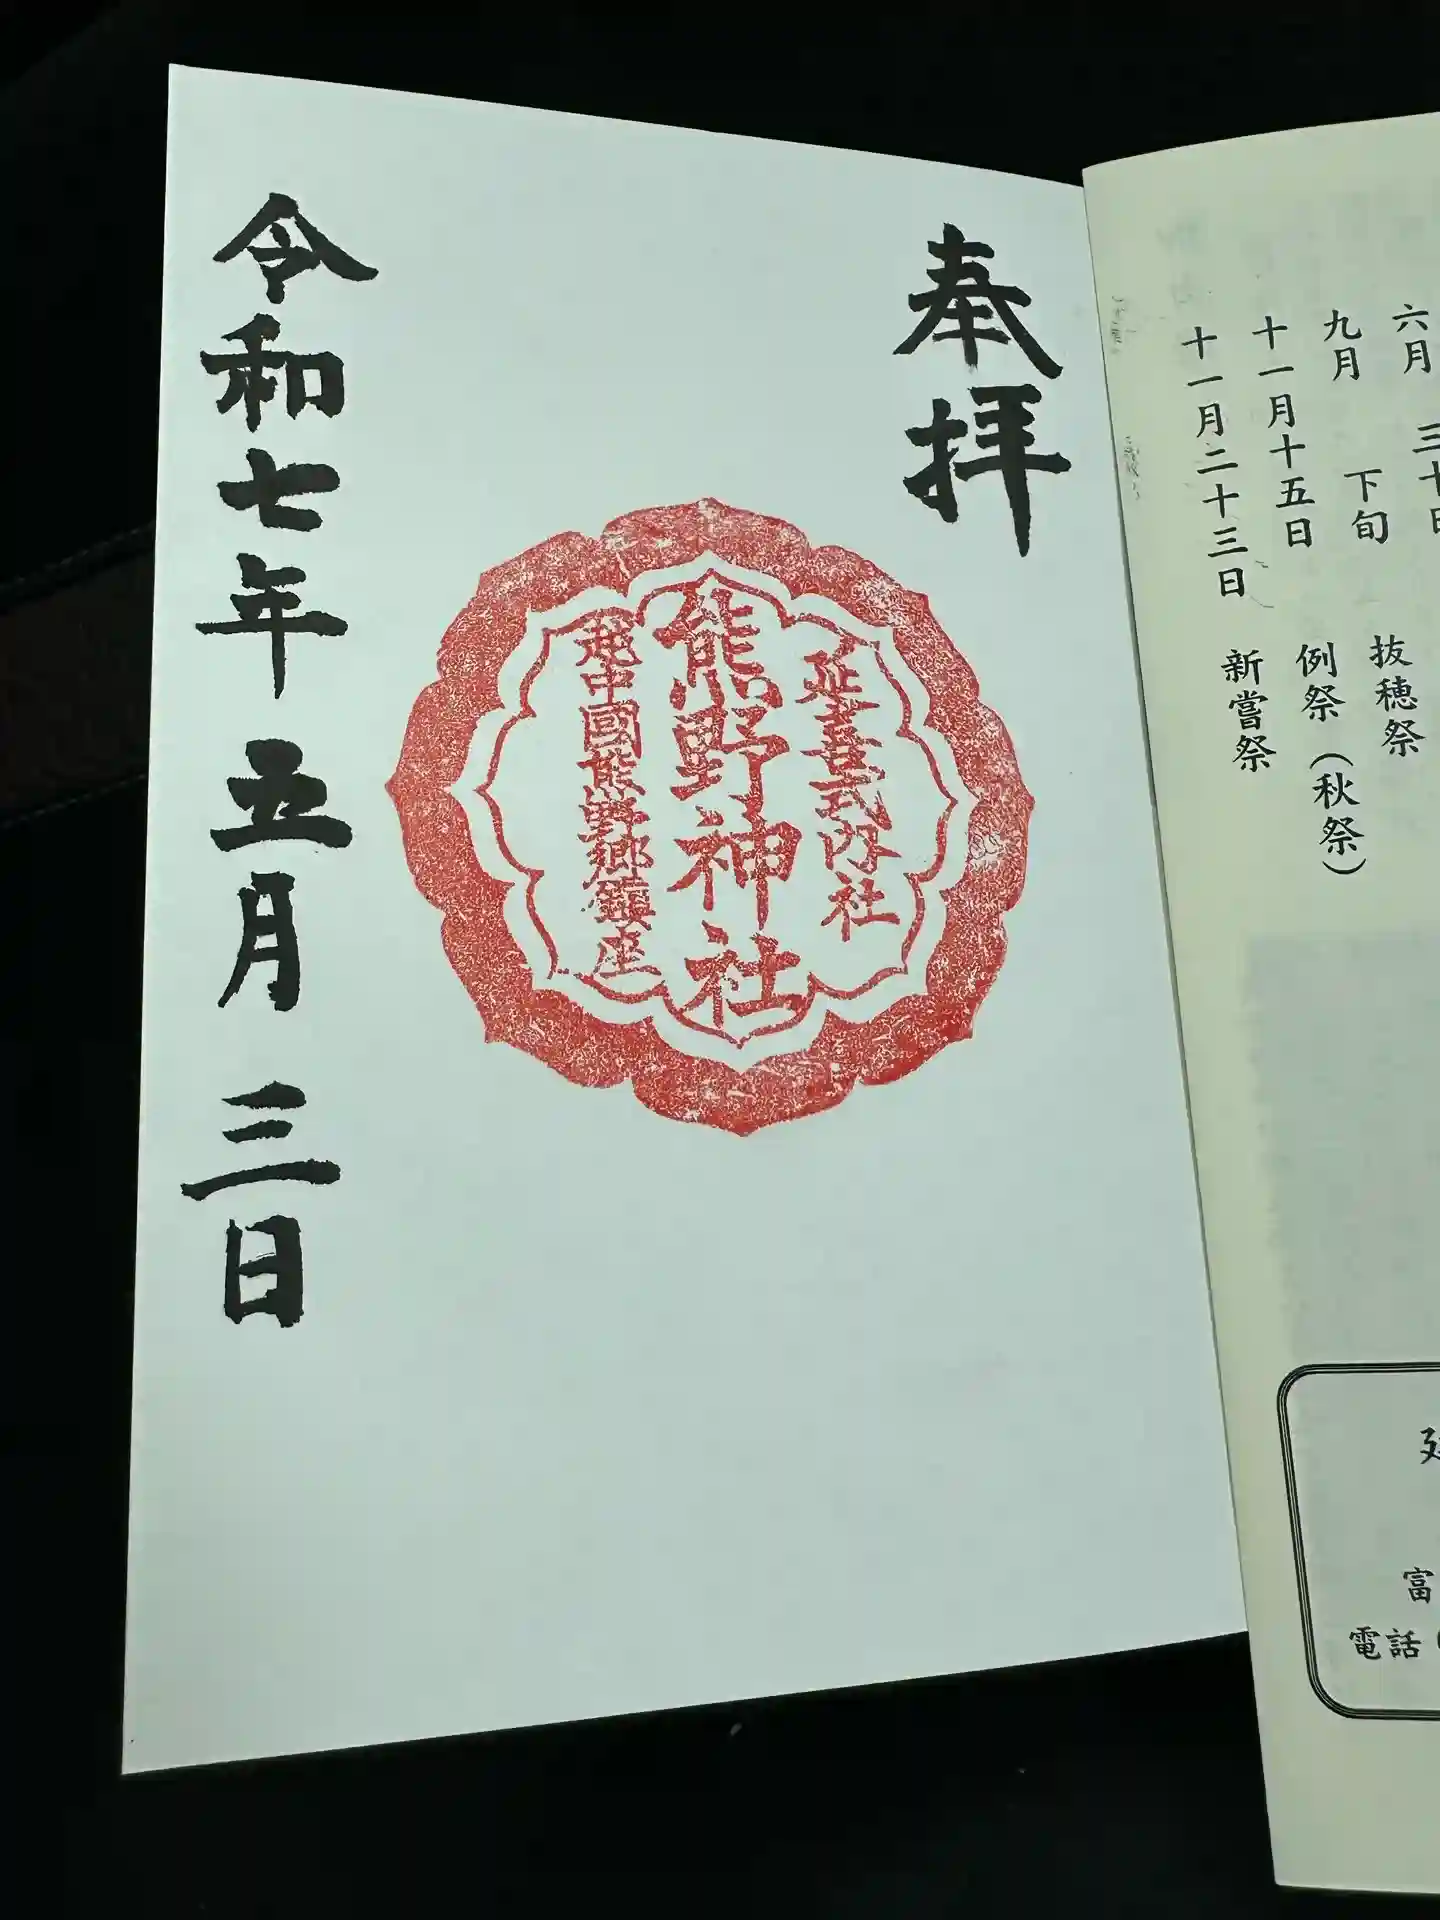 奉拝
延喜式内社
熊野神社
越中國熊野郷鎮座
令和七年 五月 三日
六月 三十日
九月 下旬 抜穂祭
十一月十五日 例祭（秋祭）
十一月二十三日 新嘗祭
富
電話